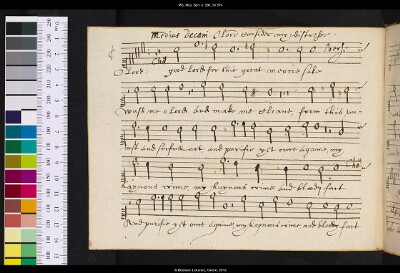 Medius decani O lord consider my distresse
O Lord good lord for thie great mercie sake
Wash me o lord and make me cleane, from this
and sinfull act and purifie yet once againe, my
haynous crime, my haynous crime and bloody fact
And purifie yet once againe my haynous crime and bloody fact
© Bodleian Libraries, Oxford